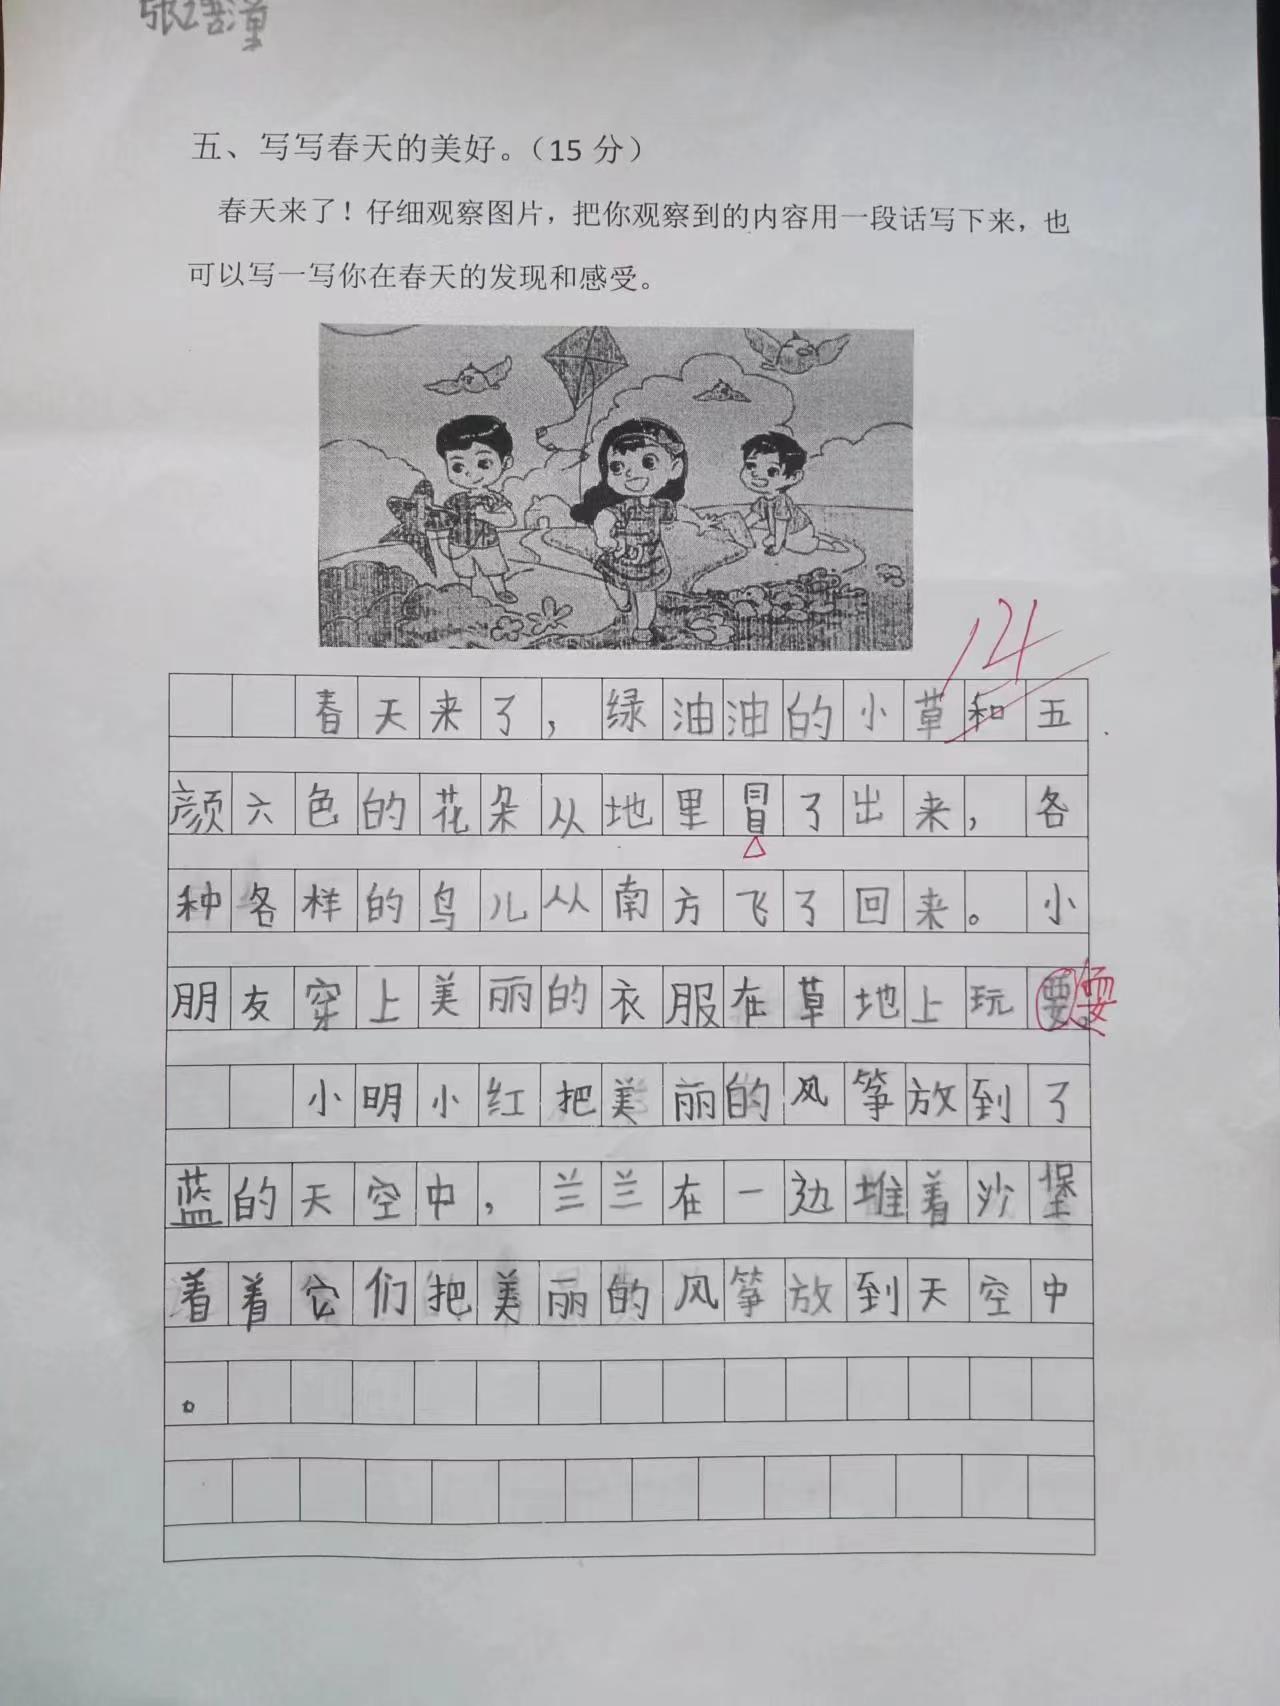 张语潼
五、写写春天的美好。（15 分）
春天来了！仔细观察图片，把你观察到的内容用一段话写下来，也
可以写一写你在春天的发现和感受。
14
春天来了，绿油油的小草和五
颜六色的花朵从地里冒了出来，各
种各样的鸟儿从南方飞了回来。小
朋友穿上美丽的衣服在草地上玩要耍。
小明小红把美丽的风筝放到了
蓝的天空中，兰兰在一边堆着沙堡
着着它们把美丽的风筝放到天空中
。